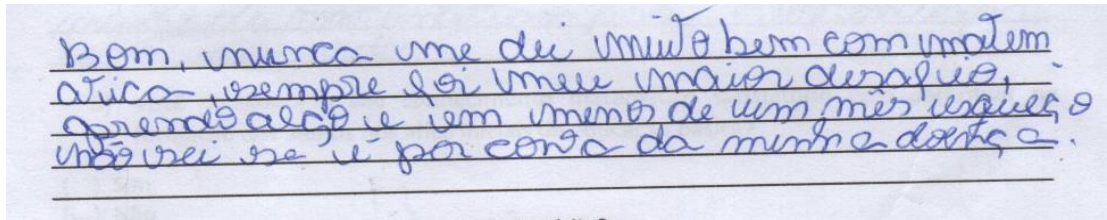 Bom, nunca me dei muito bem com matem
ática, sempre foi meu maior desafio,
aprendo algo e em menos de um mês esqueço
não sei se é por conta da minha doença.